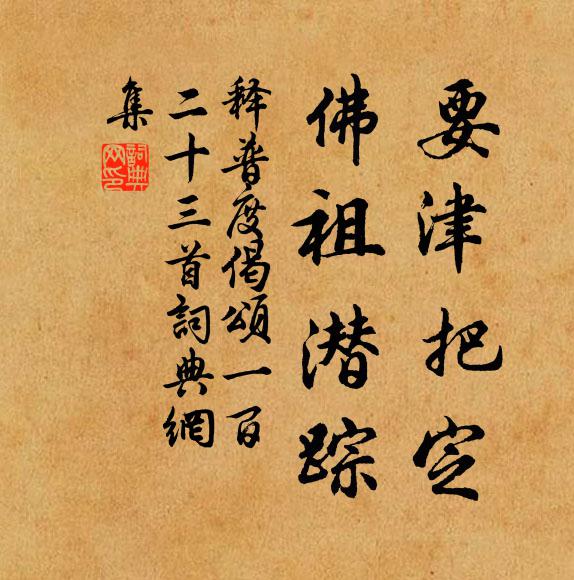 要津把定
佛祖潜踪
释普度偈頌一百
二十三首詞典網
集
詞典
网印